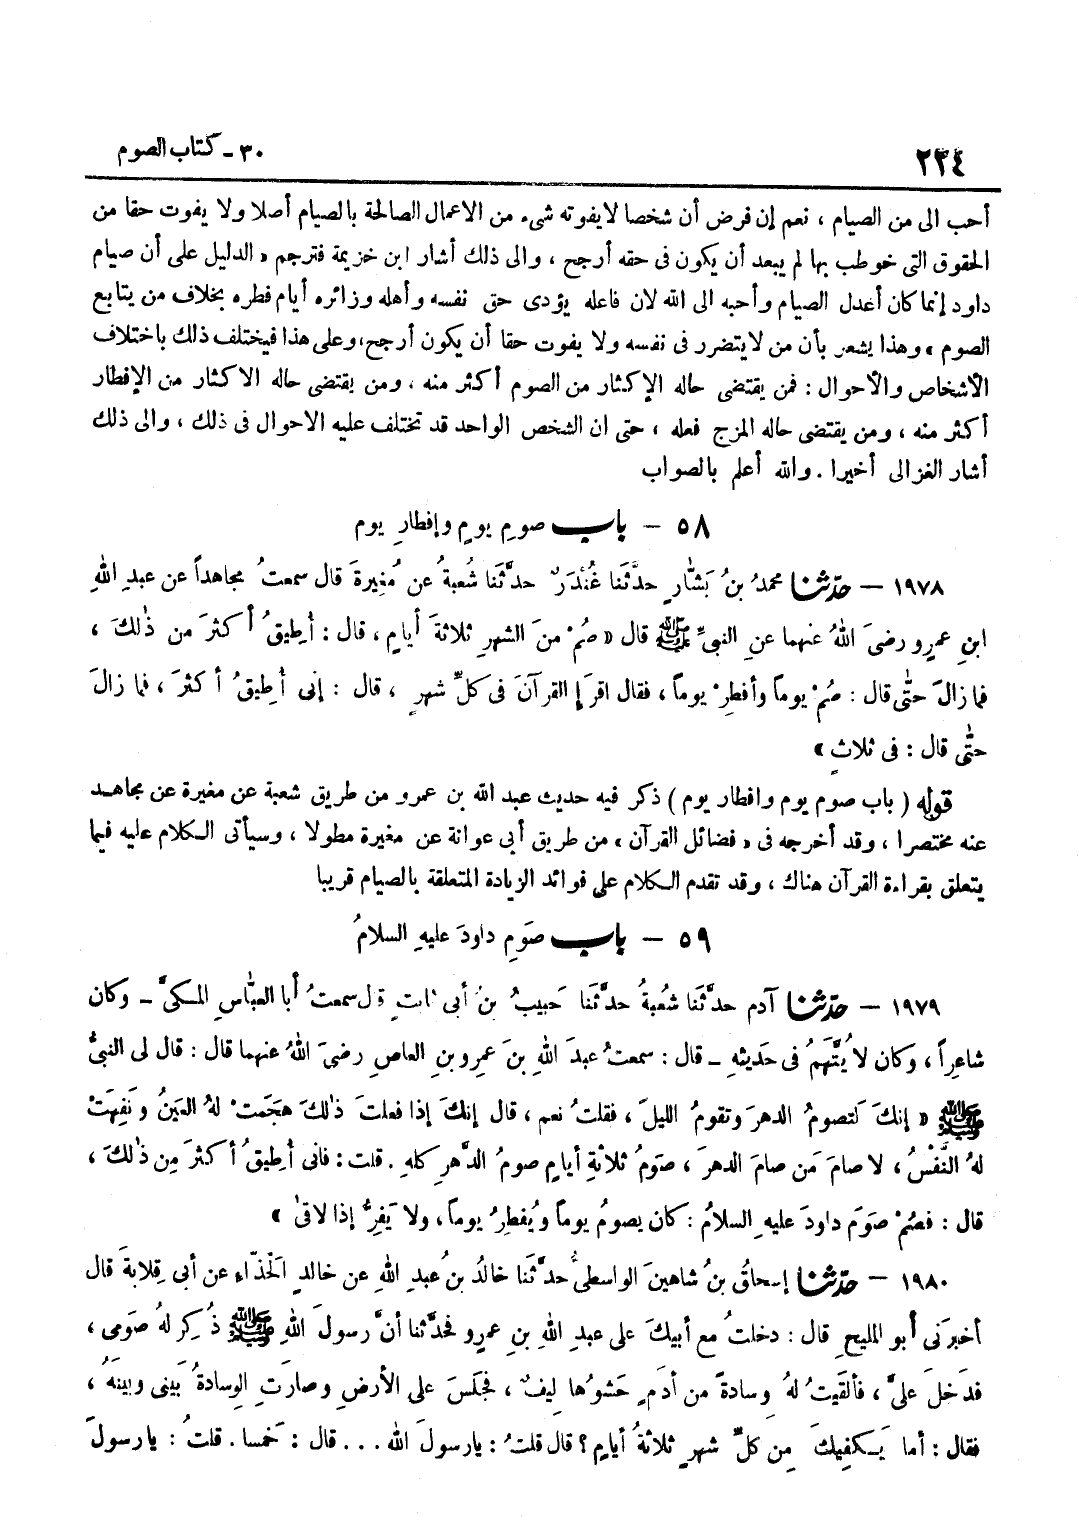 ٢٢٤
٣٠ - كتاب الصوم
أحب الى من الصيام ، نعم إن فرض أن شخصا لايفوته شىء من الاعمال الصالحة بالصيام أصلا ولا يفوت حقا من
الحقوق التى خوطب بها لم يبعد أن يكون فى حقه أرجح ، والى ذلك أشار ابن خزيمة فترجم « الدليل على أن صيام
داود إنما كان أعدل الصيام وأحبه الى الله لان فاعله يؤدى حق نفسه وأهله وزائره أيام فطره بخلاف من يتابع
الصوم » وهذا يشعر بأن من لايتضرر فى نفسه ولا يفوت حقا أن يكون أرجح، وعلى هذا فيختلف ذلك باختلاف
الأشخاص والأحوال : فمن يقتضى حاله الإكثار من الصوم أكثر منه ، ومن يقتضى حاله الاكثار من الإفطار
أكثر منه ، ومن يقتضى حاله المزج فعله ، حتى ان الشخص الواحد قد تختلف عليه الاحوال فى ذلك ، والى ذلك
أشار الغزالى أخيرا . والله أعلم بالصواب
٥٨ - باب صومِ يومٍ وإفطارِ يوم
١٩٧٨ - حدّثنا محمدُ بنُ بَشّارٍ حدَّثَنا غُنْدَرٌ حدَّثَنا شُعبةُ عن مُغِيرةَ قال سمعتُ مجاهداً عن عبدِ اللهِ
ابنِ عمرٍو رضىَ اللهُ عنهما عنِ النبىِّ ﷺ قال « صُمْ منَ الشهرِ ثلاثةَ أيامٍ ، قال : أُطِيقُ أكثرَ من ذٰلكَ ،
فما زالَ حتّٰى قال : صُمْ يوماً وأفطِرْ يوماً ، فقال اقرَإِ القرآنَ فى كلِّ شهرٍ ، قال : إنى أُطيقُ أكثرَ ، فما زالَ
حتّٰى قال : فى ثلاثٍ »
قوله ( باب صوم يوم وافطار يوم ) ذكر فيه حديث عبد الله بن عمرو من طريق شعبة عن مغيرة عن مجاهد
عنه مختصرا ، وقد أخرجه فى « فضائل القرآن » من طريق أبى عوانة عن مغيرة مطولا ، وسيأتى الكلام عليه فيما
يتعلق بقراءة القرآن هناك ، وقد تقدم الكلام على فوائد الزيادة المتعلقة بالصيام قريبا
٥٩ - باب صَومِ داودَ عليهِ السلامُ
١٩٧٩ - حدّثنا آدم حدَّثَنا شُعبةُ حدَّثَنا حَبيبُ بنُ أبى ثابتٍ قال سمعتُ أبا العبّاسِ المكىَّ - وكان
شاعِراً ، وكان لا يُتَّهَمُ فى حَديثهِ - قال : سمعتُ عبدَ اللهِ بنَ عمرِو بنِ العاصِ رضىَ اللهُ عنهما قال : قال لى النبىُّ
ﷺ « إنكَ لَتصومُ الدهرَ وتقومُ الليلَ ، فقلتُ نعم ، قال إنكَ إذا فعلتَ ذٰلكَ هجَمَتْ لهُ العَينُ ونَفِهَتْ
لهُ النَّفْسُ ، لا صامَ مَن صامَ الدهرَ ، صَومُ ثلاثةِ أيامٍ صومُ الدَّهرِ كلهِ . قلت : فانى أُطِيقُ أكثرَ مِن ذٰلكَ ،
قال : فصُمْ صَومَ داودَ عليهِ السلامُ : كان يصومُ يوماً ويُفطِرُ يوماً ، ولا يَفِرُّ إذا لاقىٰ »
١٩٨٠ - حدّثنا إسحاقُ بنُ شاهينَ الواسطىُّ حدَّثَنا خالدُ بنُ عبدِ اللهِ عن خالدٍ الحَذّاءِ عن أبى قِلابةَ قال
أخبرَنى أبو المليحِ قال : دخلتُ مع أبيكَ على عبدِ اللهِ بنِ عمرٍو فحدَّثنا أنَّ رسولَ اللهِ ﷺ ذُكِرَ لهُ صَومى ،
فدَخلَ علىَّ ، فألقَيتُ لهُ وِسادةً من أدَمٍ حَشوُها لِيفٌ ، فجلَسَ على الأرضِ وصارَتِ الوِسادةُ بَينى وبينَهُ ،
فقال : أما يَكفِيكَ مِن كلِّ شهرٍ ثلاثةُ أيامٍ ؟ قال قلتُ : يارسولَ الله ... قال : خَمسا . قلتُ : يارسولَ